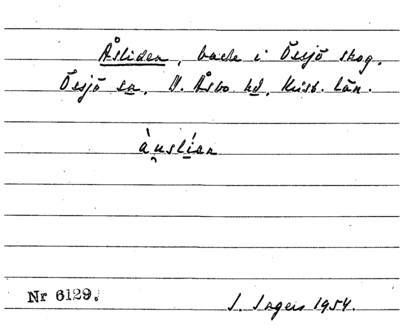 Åsliden, backe i Össjö skog,
Össjö sn, N. Åsbo hd, Krist. län.
àu̯slían
Nr 6129.
J. Ingers 1954.